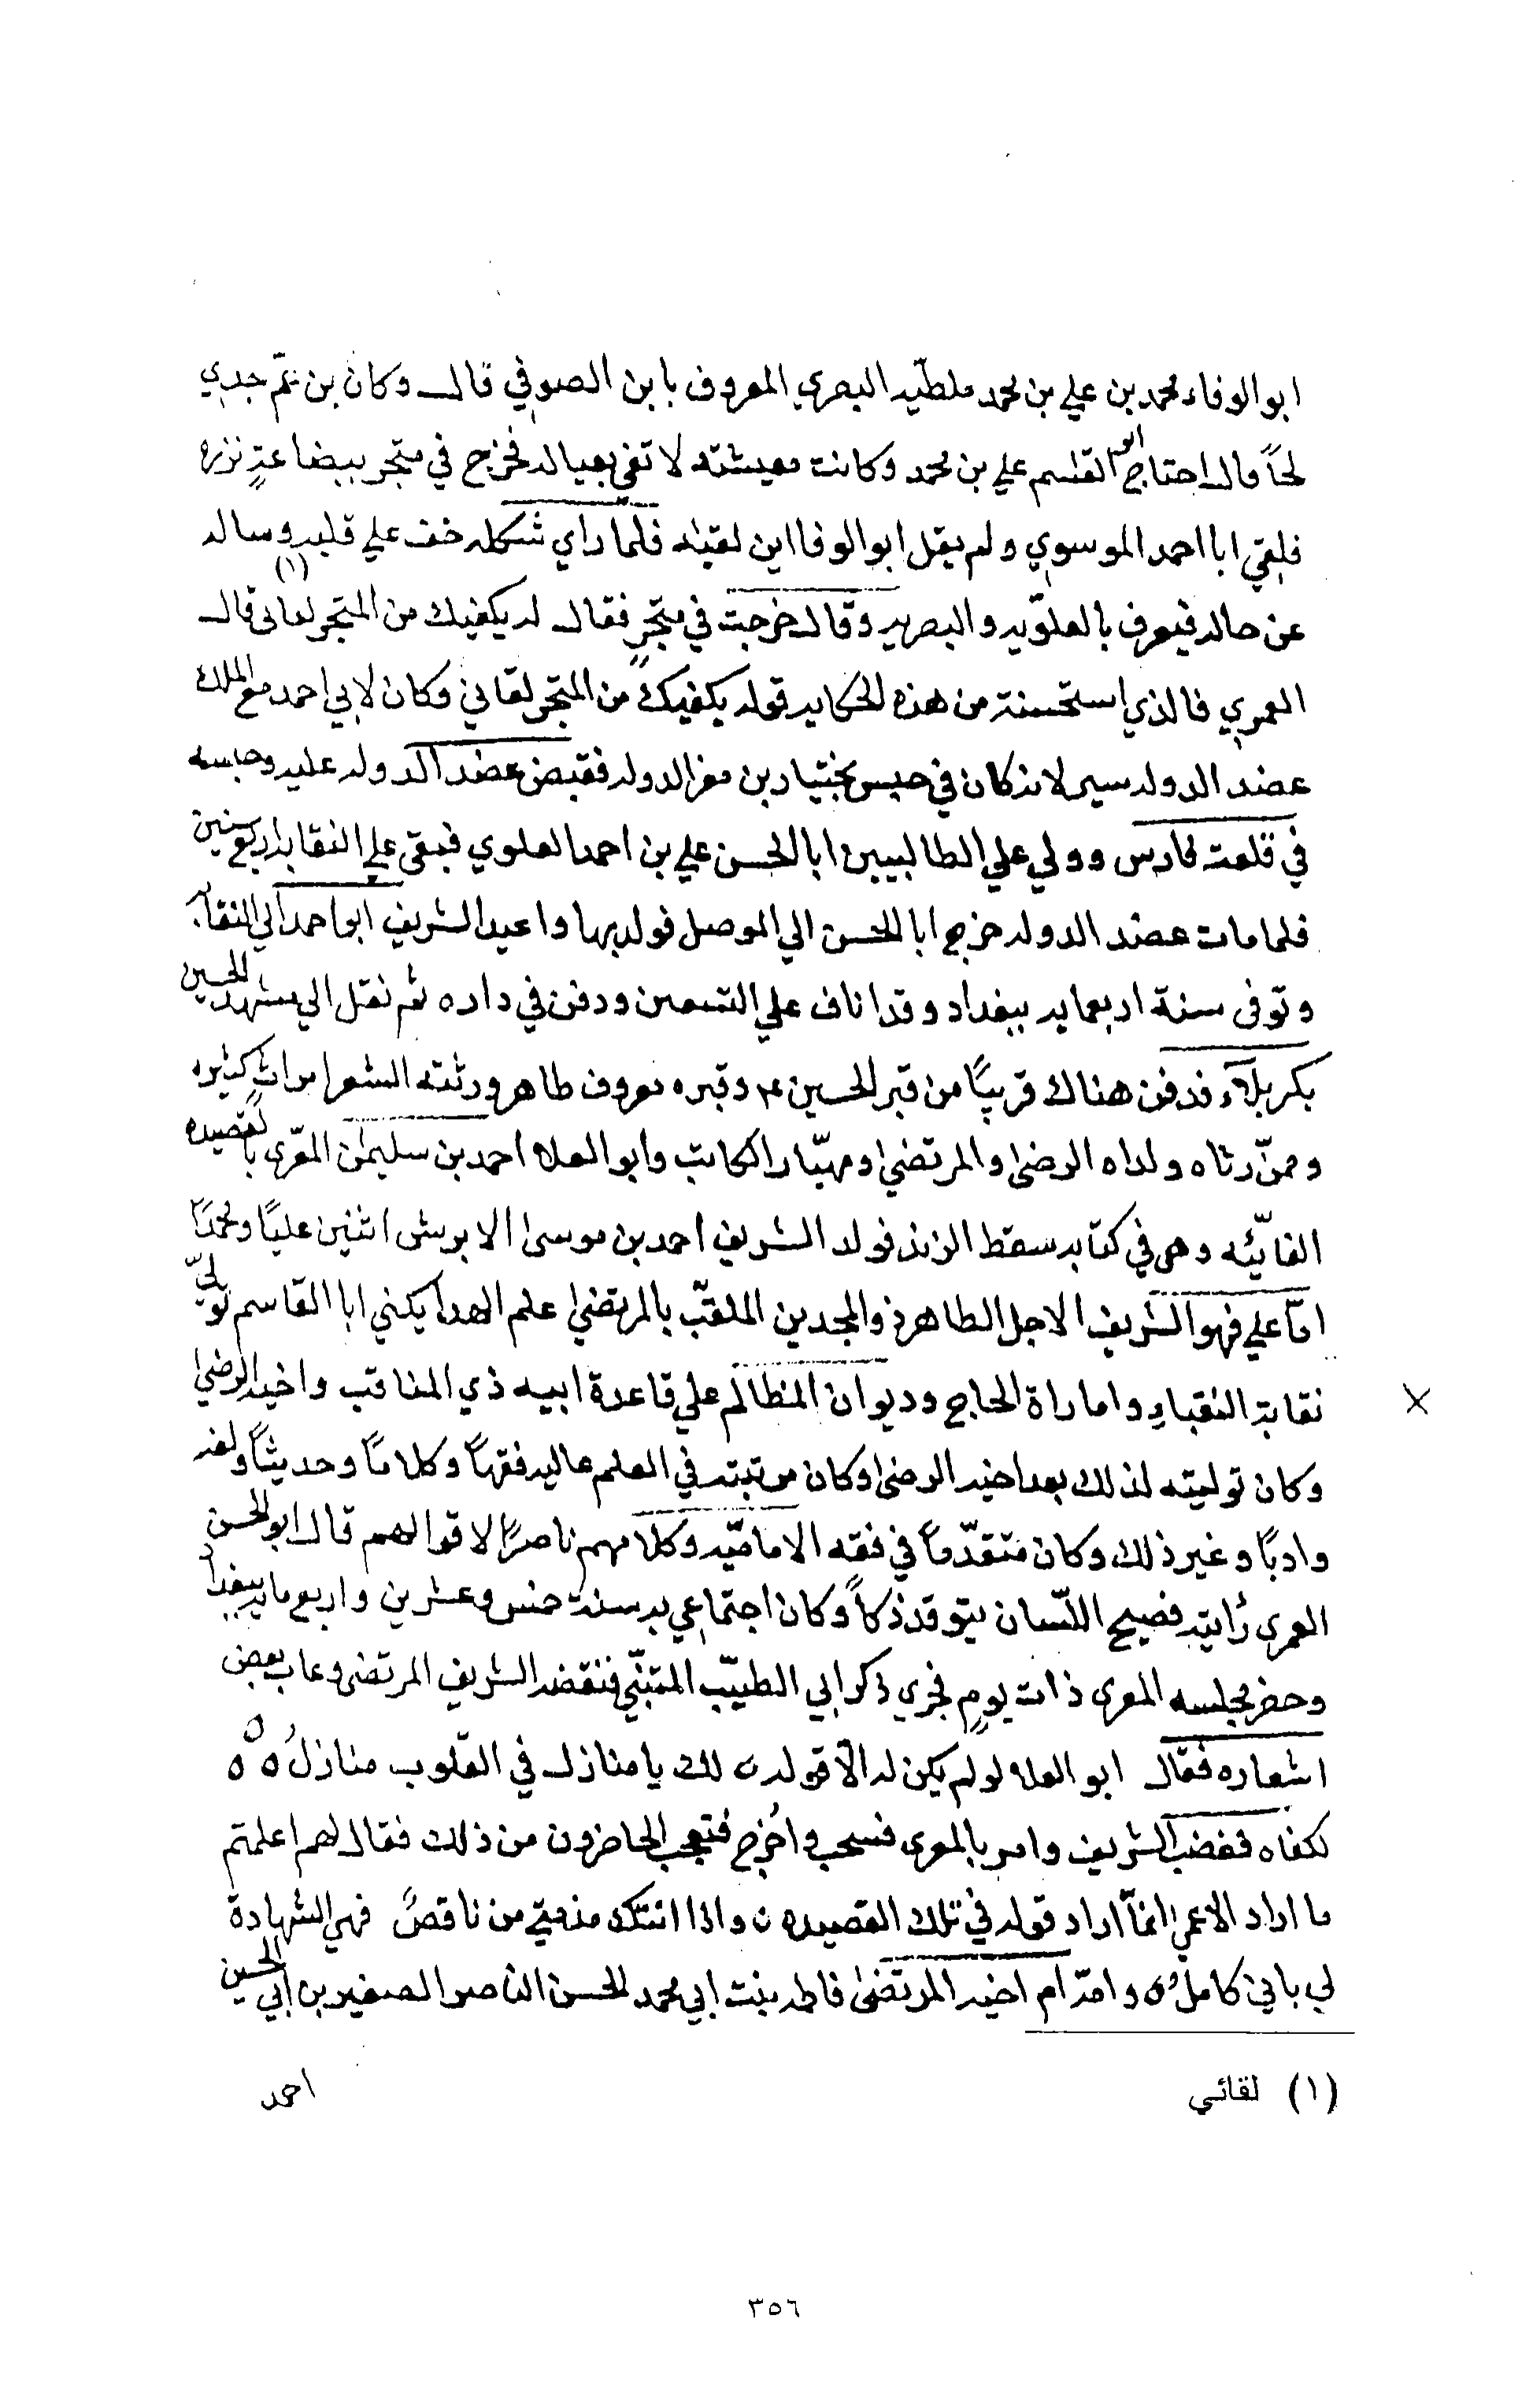 ابو الوفاء محمد بن علي بن محمد ملطيه البصري المعروف بابن الصوفي قال وكان بن عم جدي
لحاً قال احتاج ابو القاسم علي بن محمد وكانت معيشته لا تفي بعياله فخرج في متجر ببضاعةٍ نزره
فلقي ابا احمد الموسوي ولم يقل ابو الوفا اين لقيه فلما راي شكله خف علي قلبه وساله
عن حاله فيعرف بالعلويّه والبصريه وقال خرجت في متجرٍ فقال له يكفيك من المتجر لقائى (١) قال
العمري فالذي استحسنة من هذه الحكايه قوله يكفيك من المتجر لقاني وكان لابي احمد مع الملك
عضد الدوله سير لانه كان في حبس بختيار بن معز الدوله فقبض عضد الدوله عليه وحبسه
في قلعت فارس وولي علي الطالبيين ابا الحسن علي بن احمد العلوي فبقى علي النقابه اربع سنين
فلما مات عضد الدوله خرج ابا الحسن الي الموصل فولد بها واعيد الشريف ابو احمد الي النقابه
وتوفى سنة اربعمايه ببغداد وقد اناف علي التسعين ودفن في داره ثم نقل الي مشهد الحسين
بكربلآء فدفن هناك قريبًا من قبر الحسين ؏ وقبره معروف ظاهر ورثته الشعرا مراثٍ كثيره
وممّن رثاه ولداه الرضىٰ والمرتضىٰ ومهيّار الكاتب وابو العلاء احمد بن سليمٰن المعّرى بالقصيده
الفائيّه وهى في كتابه سقط الزند فولد الشريف احمد بن موسىٰ الابرش اثنين عليًا ومحمّدًا
امّا علي فهو الشريف الاجل الطاهر ذو المجدين الملقّب بالمرتضىٰ علم الهدا يكني ابا القاسم تولّي
نقابة النقباء واماراة الحاج وديوان المظالم علي قاعدة ابيه ذي المناقب واخيه الرضىٰ
وكان توليته لذلك بعد اخيه الرضىٰ وكان مرتبته في العلم عاليه فقهاً وكلامًا وحديثاً ولغه
وادبًا وغير ذلك وكان متقدّماً في فقه الاماميّه وكلامهم ناصرًا لاقوالهم قال ابو الحسن
العمرى رأيته فصيح اللّسان يتوقد ذكاً وكان اجتماعي به سنت خمس وعشرين واربع مايه ببغداد
وحضر مجلسه المعرى ذات يومٍ فجري ذكر ابي الطيّب المتبنّي فنقضه الشريف المرتضى وعاب بعض
اشعاره فقال ابو العلاء لو لم يكن له الّا قوله ه لك يا منازل في القلوب منازلُ ه ه ه
لكفاه فغضب الشريف وامر بالمعرى فسحب واُخرج فتعجب الحاضرون من ذلك فقال لهم اعلمتم
ما اراد الاعمىٰ انمّا اراد قوله في تلك القصيده ه واذا اتتك مذمتي من ناقصٍ فهي الشهادة
لي باني كاملُ ه وامّه ام اخيه المرتضىٰ فاطمه بنت ابي محمد الحسن الناصر الصغير بن ابي الحسين
(١) لقائي
احمد
٣٥٦